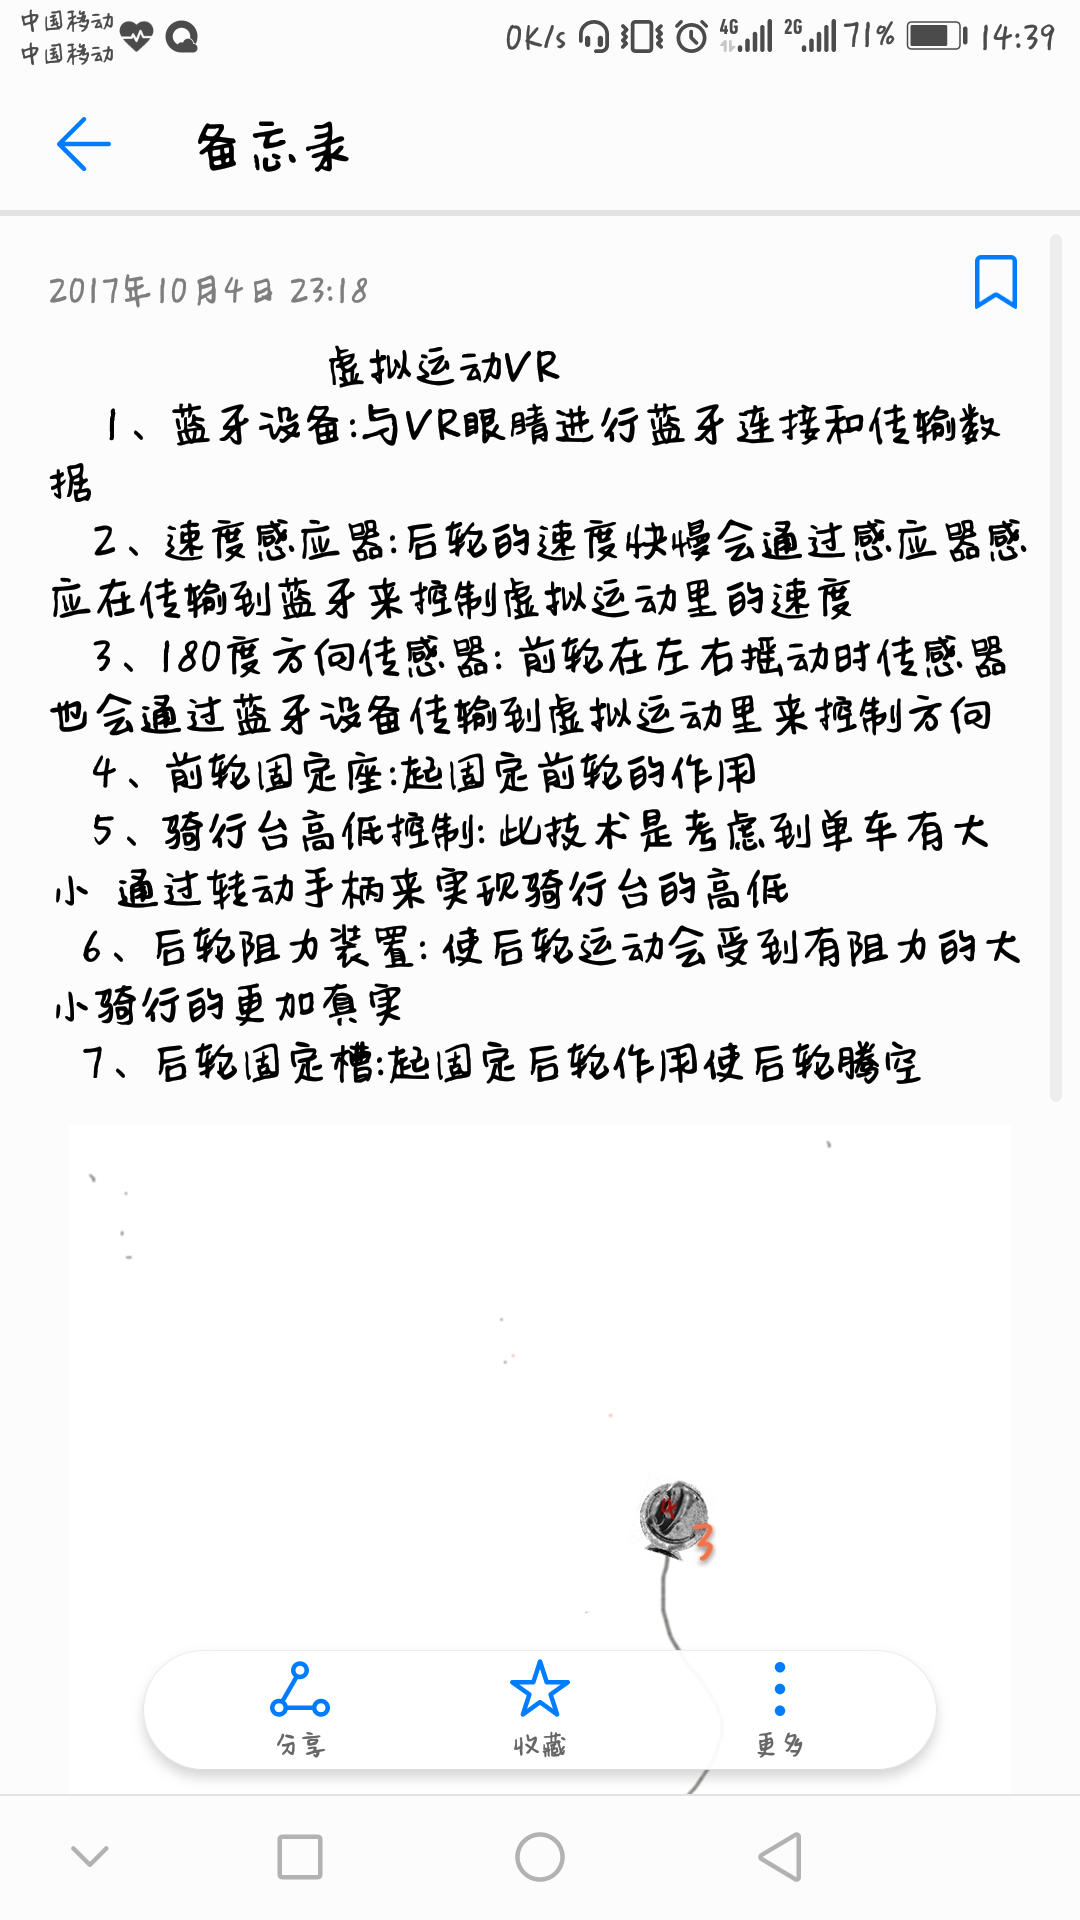 中国移动
中国移动
0K/s 4G 2G 71% 14:39
备忘录
2017年10月4日 23:18
虚拟运动VR
1、蓝牙设备:与VR眼睛进行蓝牙连接和传输数
据
2、速度感应器:后轮的速度快慢会通过感应器感
应在传输到蓝牙来控制虚拟运动里的速度
3、180度方向传感器:前轮在左右摇动时传感器
也会通过蓝牙设备传输到虚拟运动里来控制方向
4、前轮固定座:起固定前轮的作用
5、骑行台高低控制:此技术是考虑到单车有大
小 通过转动手柄来实现骑行台的高低
6、后轮阻力装置:使后轮运动会受到有阻力的大
小骑行的更加真实
7、后轮固定槽:起固定后轮作用使后轮腾空
4
3
分享 收藏 更多